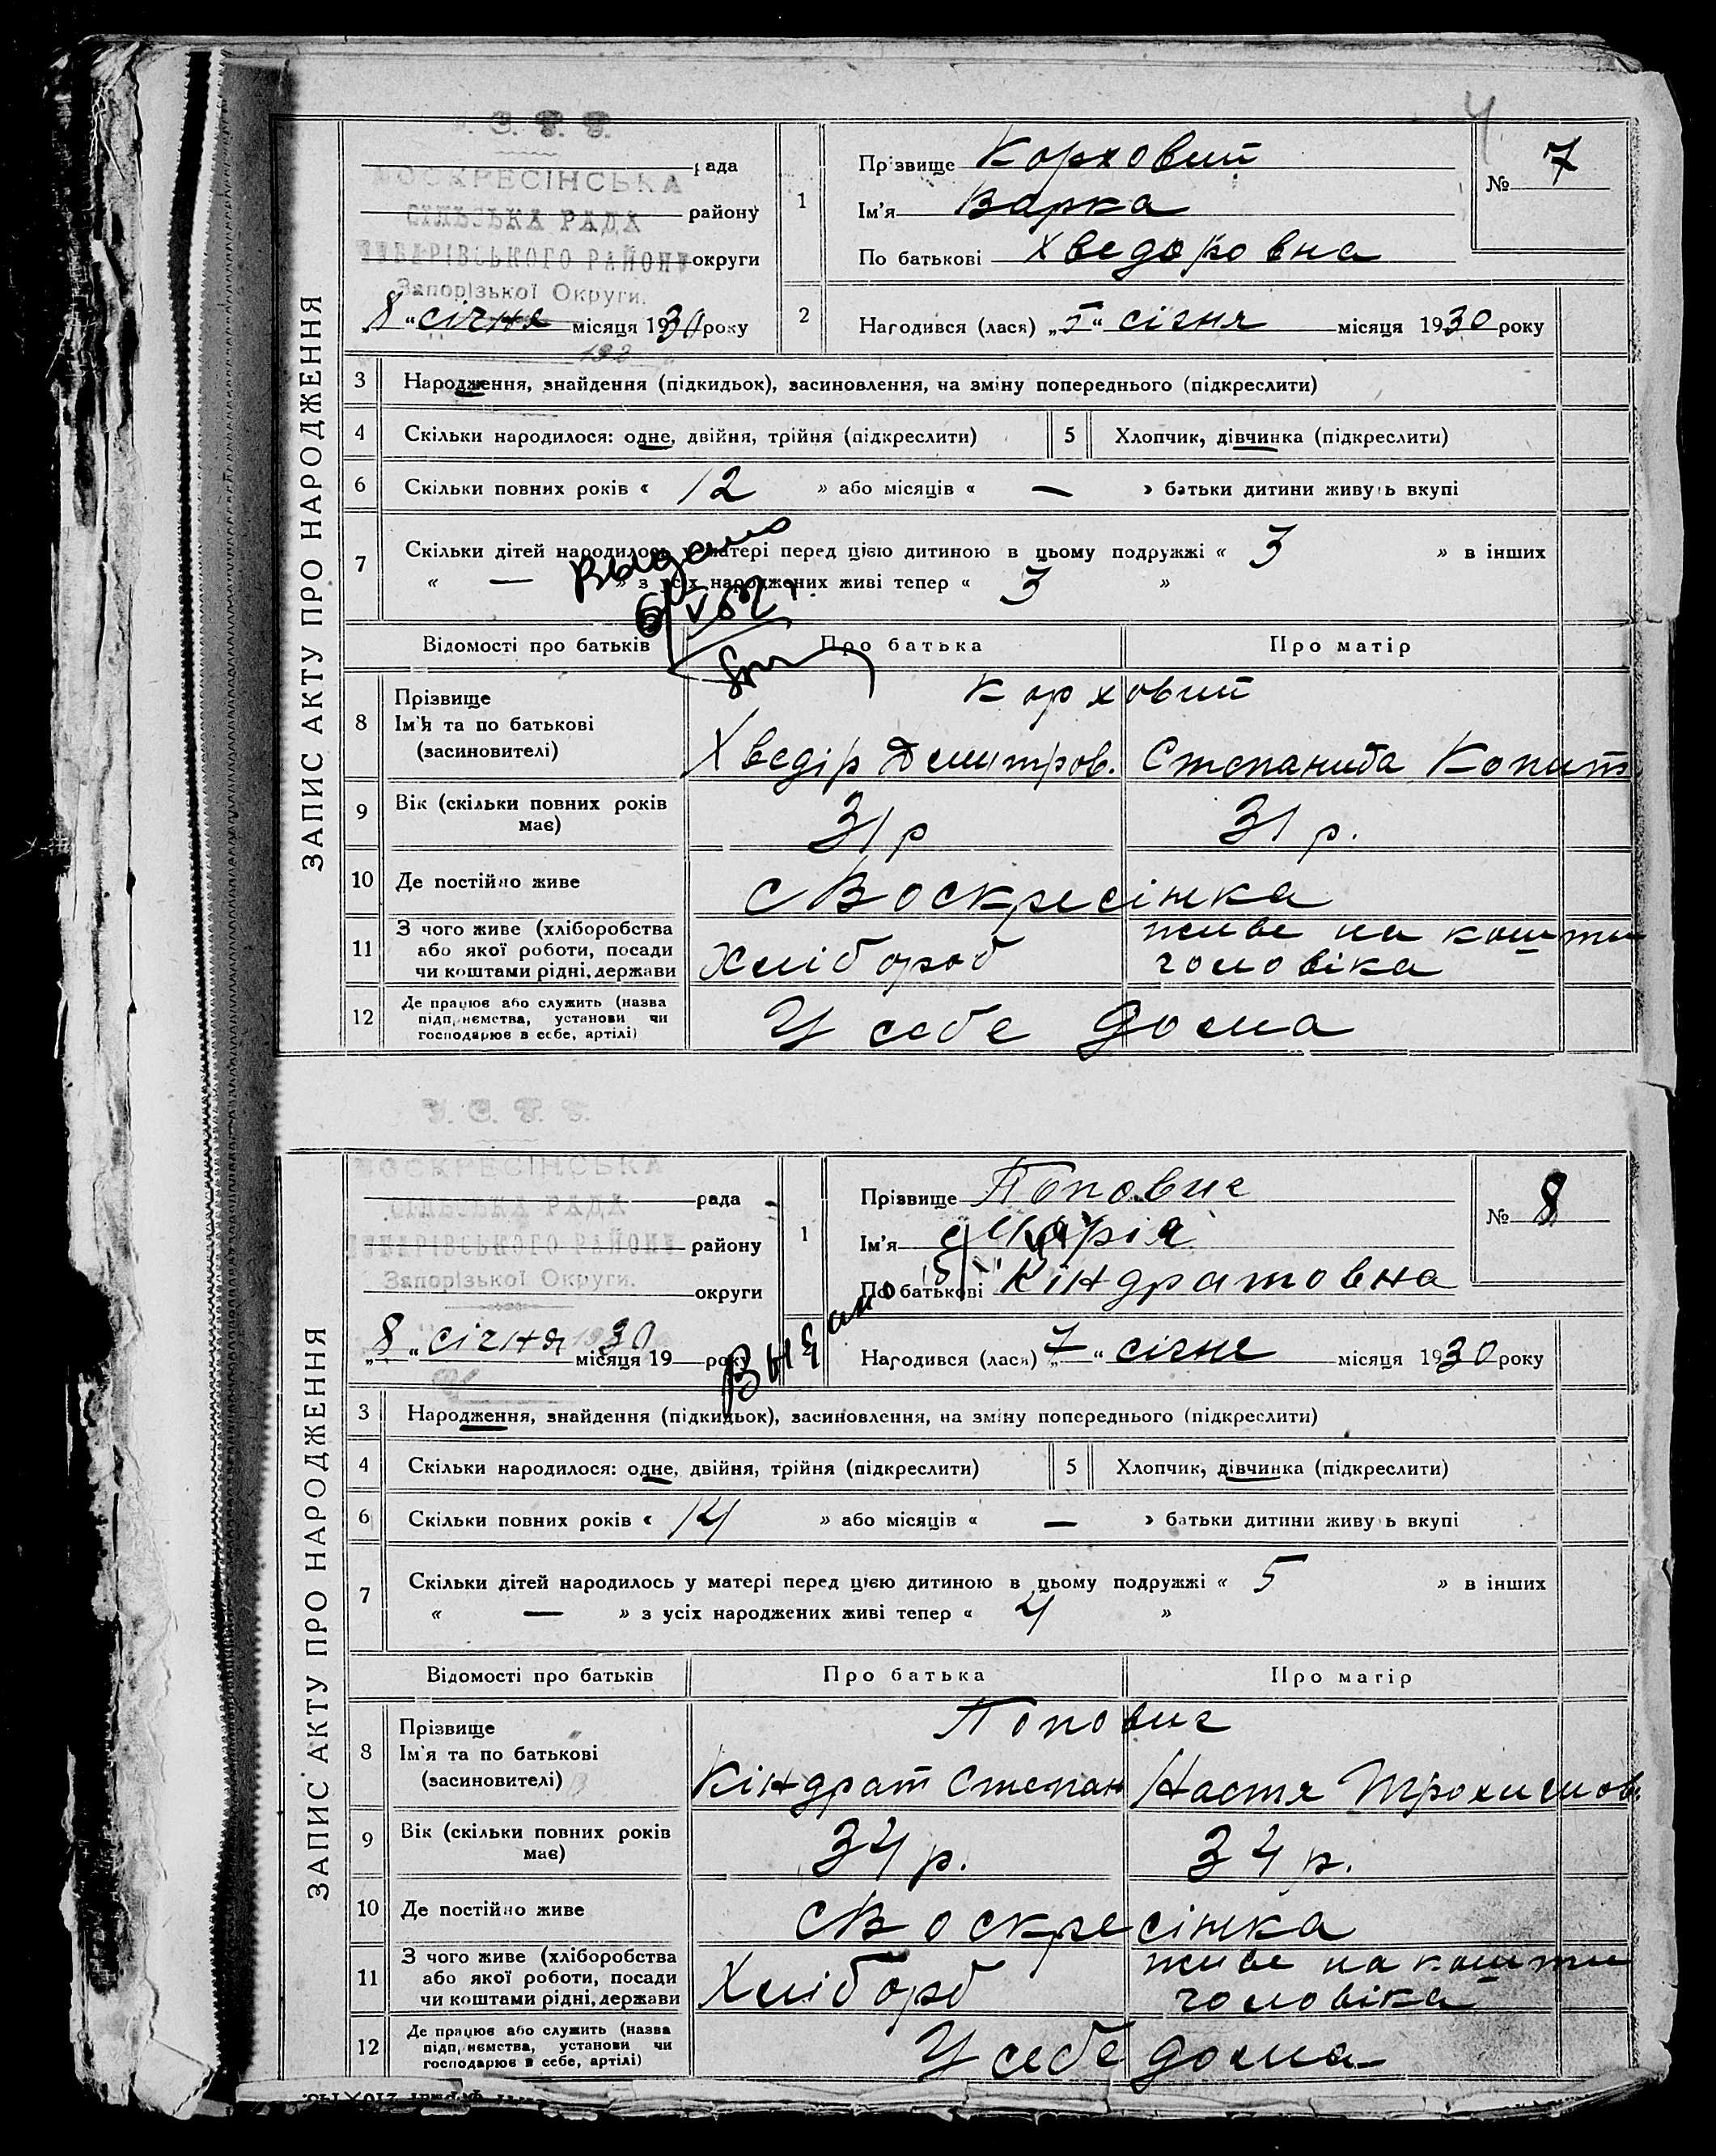 4
ЗАПИС АКТУ ПРО НАРОДЖЕННЯ
У. С. Р. Р.
рада
ВОСКРЕСІНСЬКА
СІЛЬЗЬКА РАДА району
РАЙОНУ округи
Запорізької Округи.
„8“ січня місяця 1930 року
192
1 Прізвище Корховий
Ім'я Варка
По батькові Хведоровна
№ 7
2 Нагодився (лася) „5“ січня місяця 1930 року
3 Народження, знайдення (підкидьок), засиновлення, на зміну попереднього (підкреслити)
4 Скільки народилося: одне, двійня, трійня (підкреслити) 5 Хлопчик, дівчинка (підкреслити)
6 Скільки повних років « 12 » або місяців « — » батьки дитини живуть вкупі
7 Скільки дітей народилось у матері перед цією дитиною в цьому подружжі « 3 » в інших
« — » з усіх народжених живі тепер « 3 »
Выдано
6/V
Відомості про батьків Про батька Про матір
8 Прізвище Корховий
Ім'я та по батькові
(засиновителі) Хведір Демитров. Степанида Копит
9 Вік (скільки повних років має) 31 р 31 р.
10 Де постійно живе с Воскресінка
11 З чого живе (хліборобства живе на кошти
або якої роботи, посади
чи коштами рідні, держави Хлібороб чоловіка
12 Де працює або служить (назва
підприємства, установи чи
господарює в себе, артілі) У себе дома
ЗАПИС АКТУ ПРО НАРОДЖЕННЯ
У. С. Р. Р.
ВОСКРЕСІНСЬКА
рада
СІЛЬЗЬКА РАДА
РАЙОНУ району
Запорізької Округи.
округи
„8“ січня 30 місяця 19 року
1 Прізвище Попович
Ім'я Марія
По батькові Кіндратовна
№ 8
Выдано
Нагодився (лася) „7“ січне місяця 1930 року
3 Народження, знайдення (підкидьок), засиновлення, на зміну попереднього (підкреслити)
4 Скільки народилося: одне, двійня, трійня (підкреслити) 5 Хлопчик, дівчинка (підкреслити)
6 Скільки повних років « 14 » або місяців « — » батьки дитини живуть вкупі
7 Скільки дітей народилось у матері перед цією дитиною в цьому подружжі « 5 » в інших
« — » з усіх народжених живі тепер « 4 »
Відомості про батьків Про батька Про матір
8 Прізвище Попович
Ім'я та по батькові
(засиновителі) Кіндрат Степан Настя Трохимов.
9 Вік (скільки повних років має) 34 р. 34 р.
10 Де постійно живе с Воскресінка
11 З чого живе (хліборобства живе на кошти
або якої роботи, посади
чи коштами рідні, держави Хлібороб чоловіка
12 Де працює або служить (назва
підприємства, установи чи
господарює в себе, артілі) У себе дома